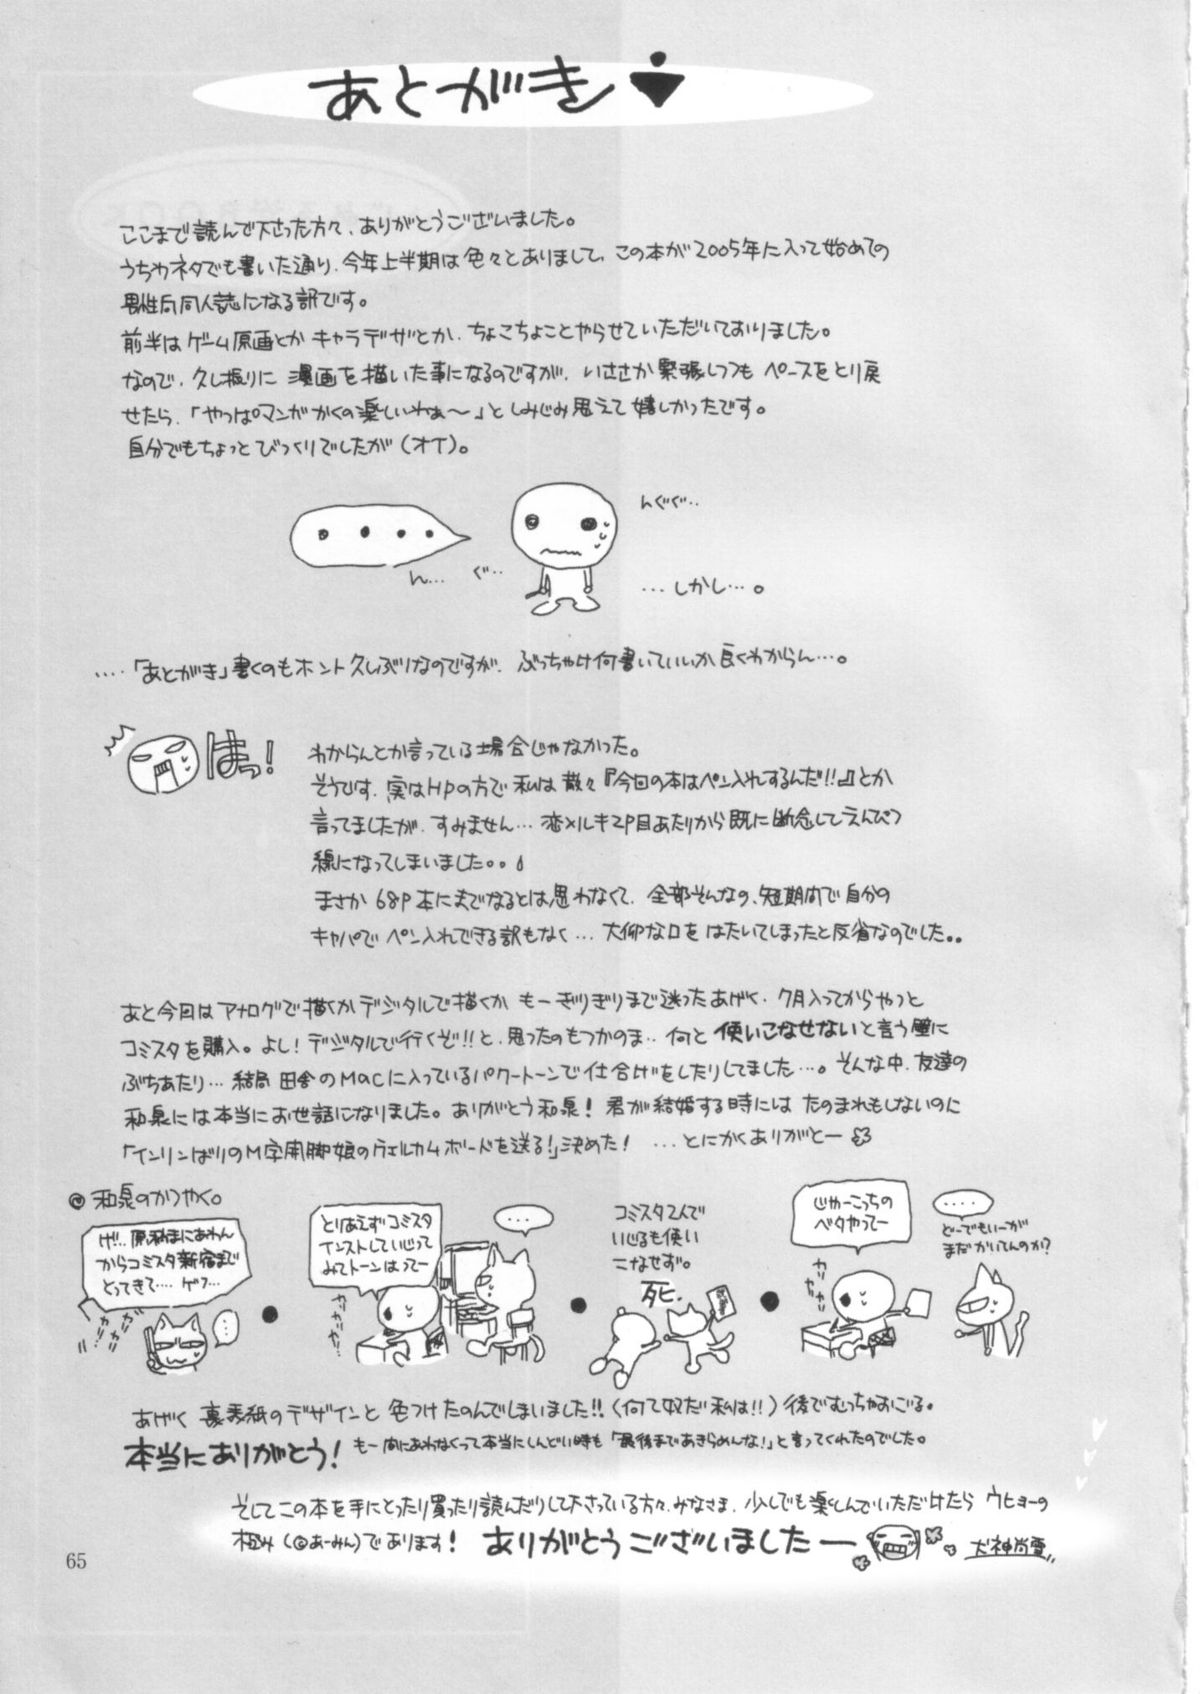 あとがき
ここまで読んで下さった方々、ありがとうございました。
うちわネタでも書いた通り、今年上半期は色々とありまして、この本が2005年に入って始めての
男性向同人誌になる訳です。
前半はゲーム原画とかキャラデザとか、ちょこちょことやらせていただいておりました。
なので、久し振りに漫画を描いた事になるのですが、いささか緊張しつつもペースをとり戻
せたら、「やっぱマンガかくの楽しいわぁ〜」としみじみ思えて嬉しかったです。
自分でもちょっとびっくりでしたが(オイ)。
んぐぐ…
ん… ぐ…
…しかし…。
….「あとがき」書くのもホント久しぶりなのですが、ぶっちゃけ何書いていいか良くわからん…。
はっ!
わからんとか言っている場合じゃなかった。
そうです、実はHPの方で私は散々『今回の本はペン入れするんだ!!』とか
言ってましたが、すみません…恋×ルキ2P目あたりから既に断念してえんぴつ
線になってしまいました。。
まさか68P本にまでなるとは思わなくて、全部そんなの、短期間で自分の
キャパでペン入れできる訳もなく…大仰な口をはたいてしまったと反省なのでした。。
あと今回はアナログで描くかデジタルで描くかもーぎりぎりまで迷ったあげく、7月入ってからやっと
コミスタを購入。よし!デジタルで行くぞ!!と、思ったのもつかのま‥何と使いこなせないと言う壁に
ぶちあたり…結局田舎のMacに入っているパワートーンで仕合げをしたりしてました…。そんな中、友達の
和泉には本当にお世話になりました。ありがとう和泉!君が結婚する時にはたのまれもしないのに
「インリンばりのM字開脚娘のウェルカムボードを送る!」決めた! …とにかくありがとー
◎和泉のかつやく。
げ!!、原稿まにあわん
からコミスタ新宿まで
とってきて…. ゲフ…
…
とりあえずコミスタ
インストしていじって
みてトーンはってー
‥‥
カリカリ
コミスタ2人で
いじるも使い
こなせず。
死、
じゃーこっちの
ベタやってー
カリカリ
‥‥
どーでもいーが
まだかいてんのか?
あげく裏表紙のデザインと色つけたのんでしまいました!!(何て奴だ私は!!)後でむっちゃおごる。
本当にありがとう! もー間にあわなくって本当にしんどい時も「最後まであきらめんな!」と言ってくれたのでした。
そしてこの本を手にとったり買ったり読んだりして下さっている方々、みなさま、少しでも楽しんでいただけたらウヒョーの
極み(©あーみん)であります! ありがとうございましたー 犬神尚雪
65